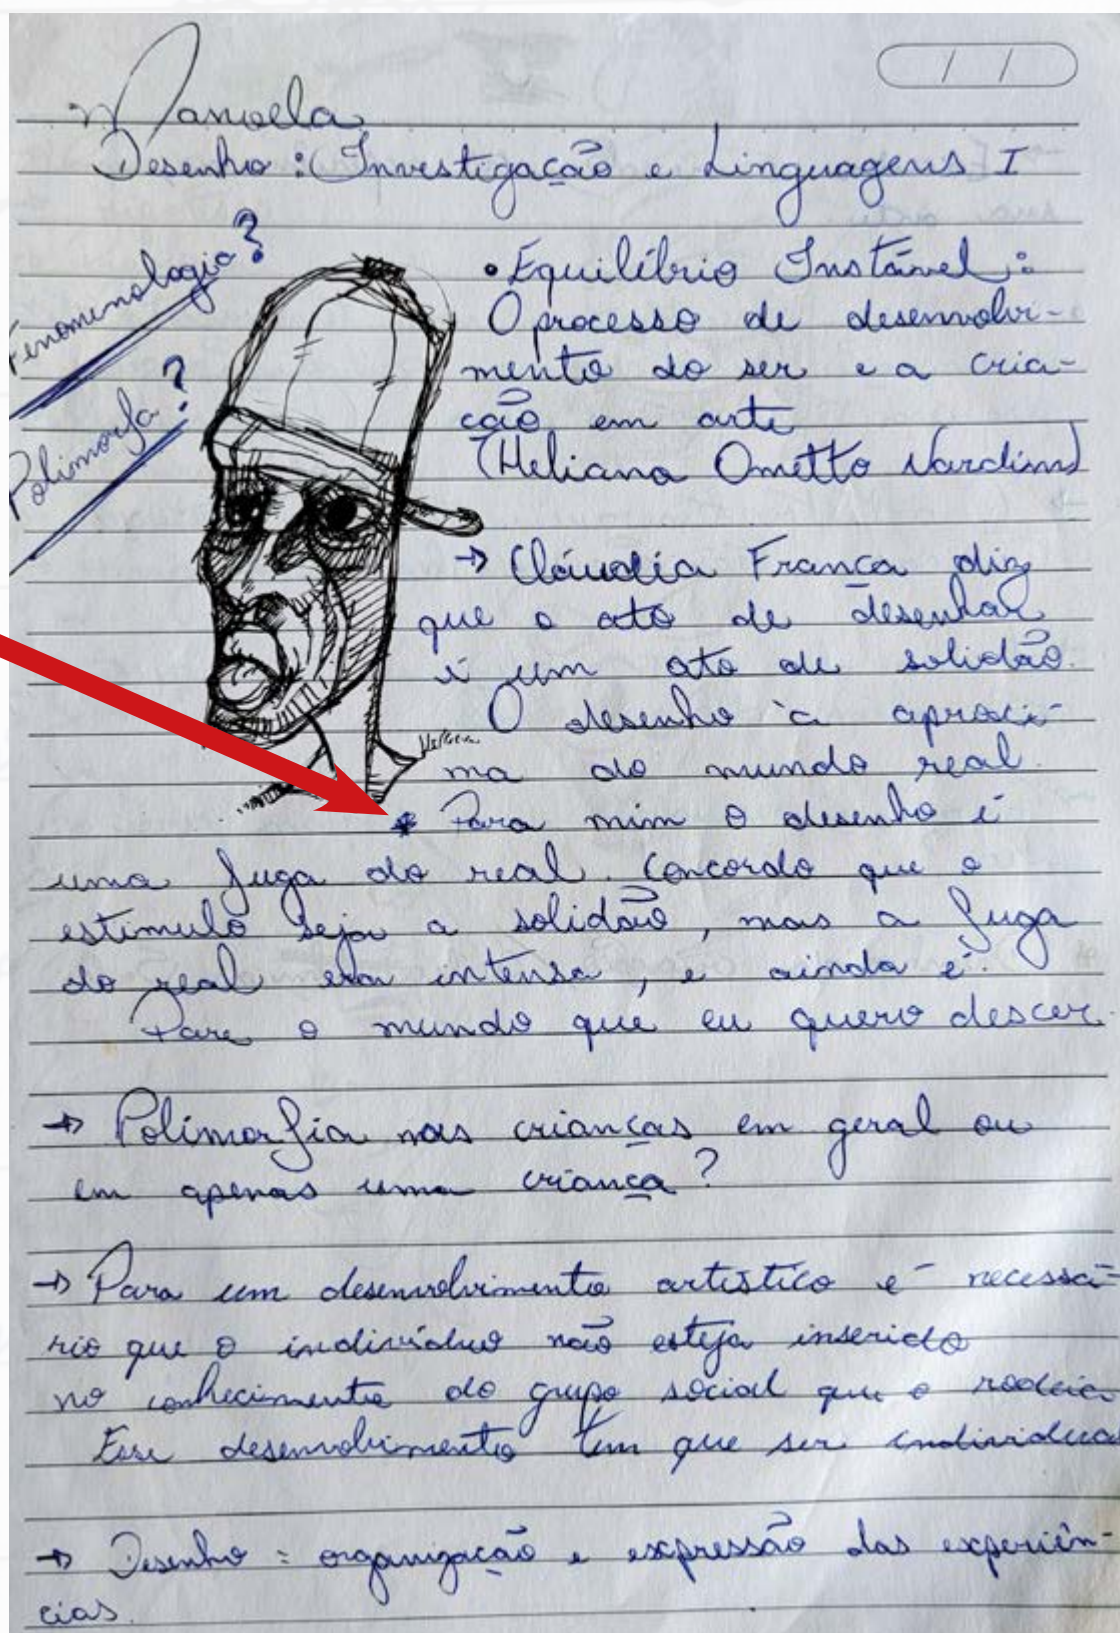 Manoela
Desenho: Investigação e Linguagens I
Fenomenologia?
Polimorfa?
• Equilíbrio Instável:
O processo de desenvolvi-
mento do ser e a cria-
ção em arte
(Heliana Ometto Nardim)
→ Cláudia França diz
que o ato de desenhar
é um ato de solidão.
O desenho a aproxi-
ma do mundo real.
* Para mim o desenho é
uma fuga do real. Concordo que o
estimulo seja a solidão, mas a fuga
do real era intensa, e ainda é.
Pare o mundo que eu quero descer.
→ Polimorfia nas crianças em geral ou
em apenas uma criança?
→ Para um desenvolvimento artístico é necessá-
rio que o indivíduo não esteja inserido
no conhecimento do grupo social que o rodeia.
Esse desenvolvimento tem que ser individual
→ Desenho = organização e expressão das experiên-
cias.